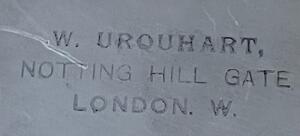 W. URQUHART,
NOTTING HILL GATE
LONDON. W.